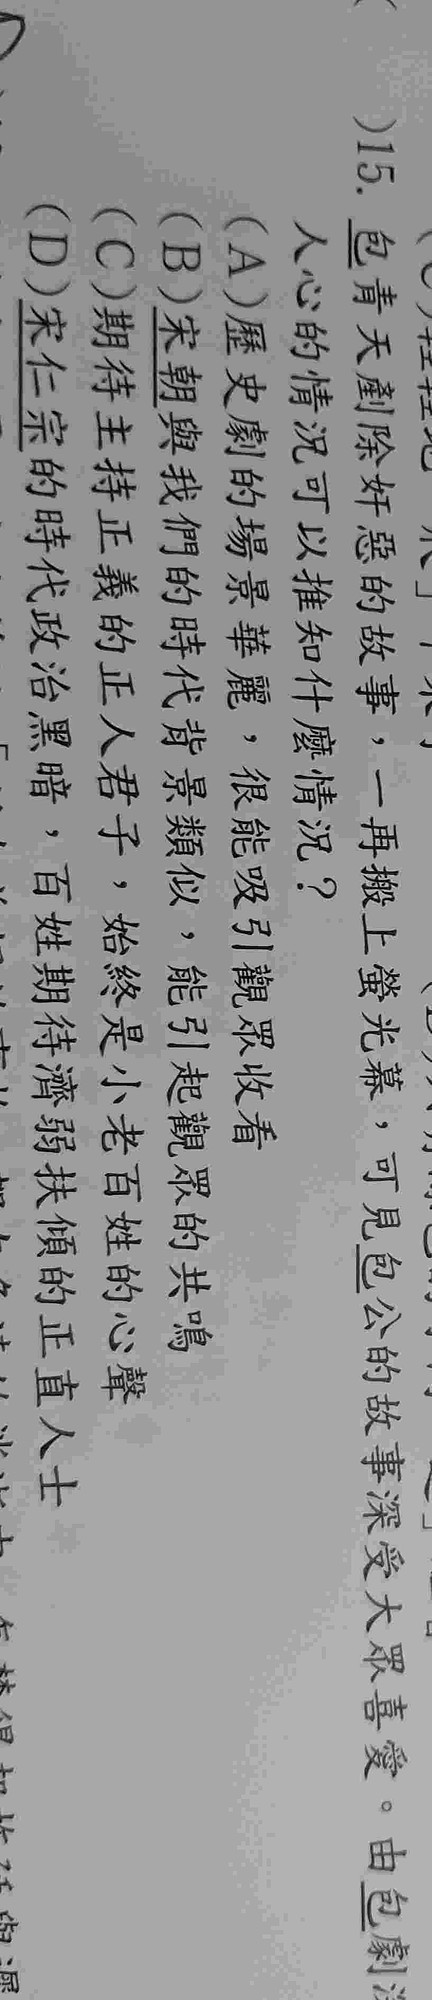 )15. 包青天剷除奸惡的故事，一再搬上螢光幕，可見包公的故事深受大眾喜愛。由包劇
人心的情況可以推知什麼情況？
(A)歷史劇的場景華麗，很能吸引觀眾收看
(B)宋朝與我們的時代背景類似，能引起觀眾的共鳴
(C)期待主持正義的正人君子，始終是小老百姓的心聲
(D)宋仁宗的時代政治黑暗，百姓期待濟弱扶傾的正直人士